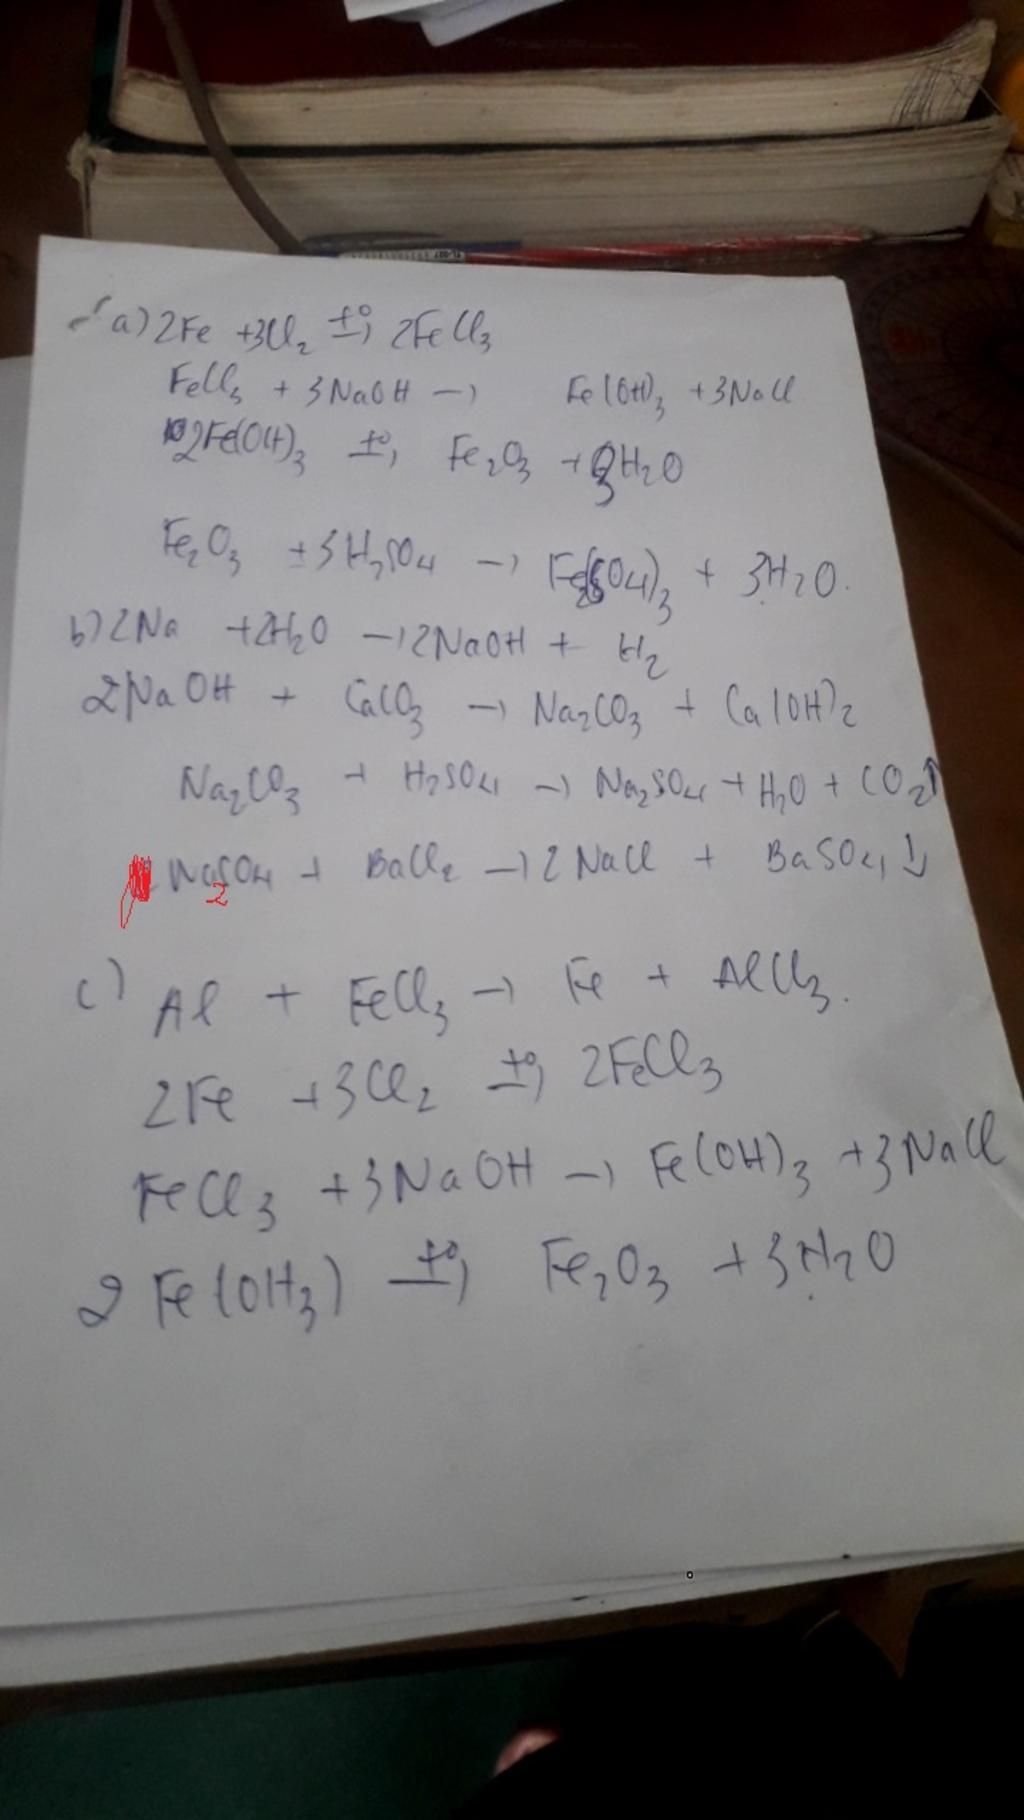 a) 2Fe + 3Cl₂ t°→ 2FeCl₃
FeCl₃ + 3NaOH → Fe(OH)₃ + 3NaCl
2Fe(OH)₃ t°→ Fe₂O₃ + 3H₂O
Fe₂O₃ + 3H₂SO₄ → Fe₂(SO₄)₃ + 3H₂O.
b) 2Na + 2H₂O → 2NaOH + H₂
2NaOH + CaCO₃ → Na₂CO₃ + Ca(OH)₂
Na₂CO₃ + H₂SO₄ → Na₂SO₄ + H₂O + CO₂↑
Na₂SO₄ + BaCl₂ → 2NaCl + BaSO₄↓
c) Al + FeCl₃ → Fe + AlCl₃.
2Fe + 3Cl₂ t°→ 2FeCl₃
FeCl₃ + 3NaOH → Fe(OH)₃ + 3NaCl
2Fe(OH₃) t°→ Fe₂O₃ + 3H₂O